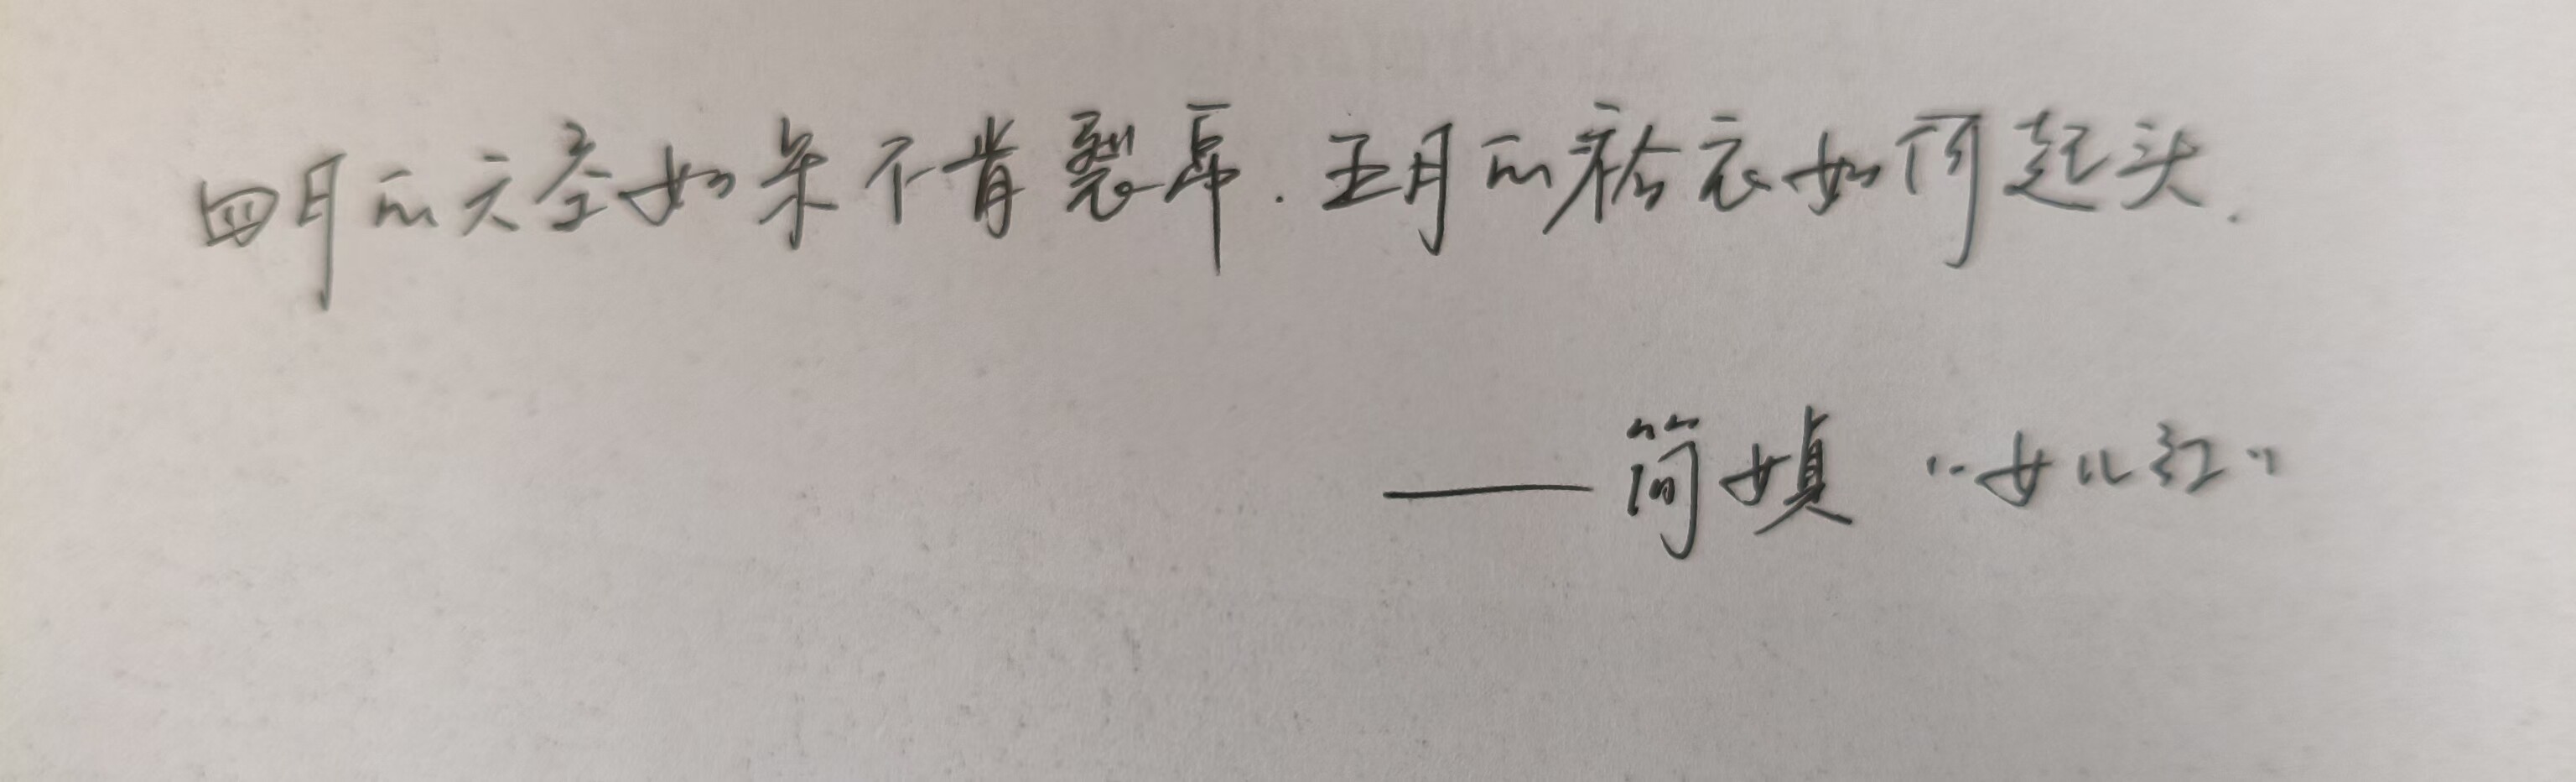 四月的天空如果不肯裂帛.五月的袷衣如何起头.
——简媜 “女儿红”